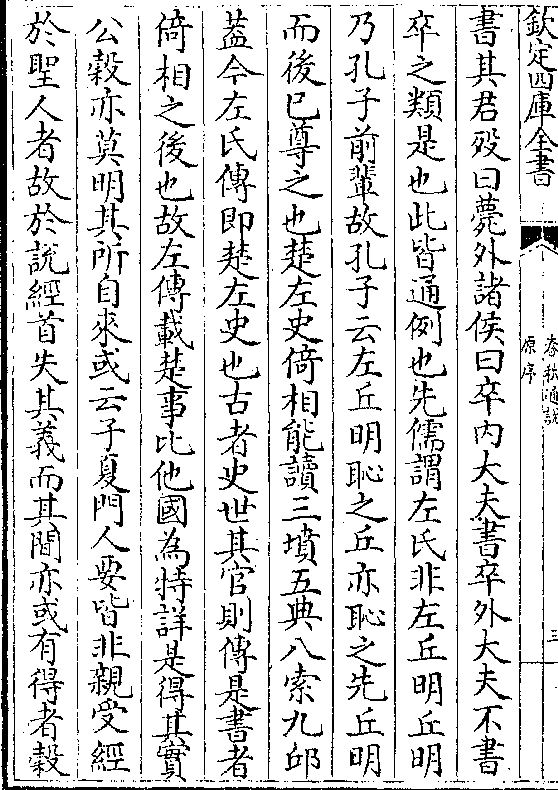 欽定四庫全書
春秋通說
原序
三
書其君歿曰薨外諸侯曰卒内大夫書卒外大夫不書
卒之類是也此皆通例也先儒謂左氏非左丘明丘明
乃孔子前輩故孔子云左丘明恥之丘亦恥之先丘明
而後已尊之也楚左史倚相能讀三墳五典八索九邱
蓋今左氏傳即楚左史也古者史世其官則傳是書者
倚相之後也故左傳載楚事比他國為特詳是得其實
公穀亦莫明其所自來或云子夏門人要皆非親受經
於聖人者故於說經首失其義而其間亦或有得者穀